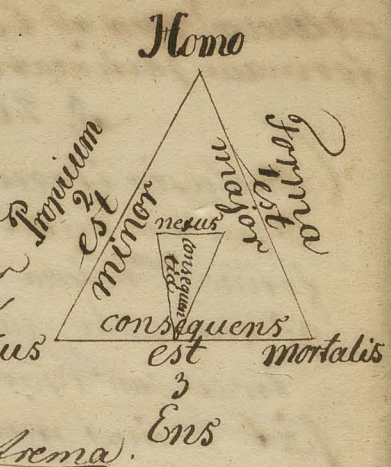 Homo
Proprium
2
est
minor
Forma
1
est
major
nexus
consequentia
consequens
tus
est
mortalis
3
Ens
trema.